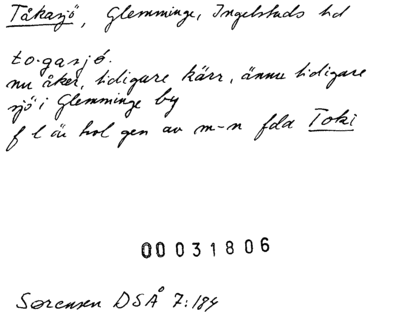 Tåkasjö, Glemminge, Ingelstads hd
to·gasjó.
nu åker, tidigare kärr, ännu tidigare
sjö i Glemminge by
f l är hol gen av m-n fda Toki
00031806
Sørensen DSÅ 7:184